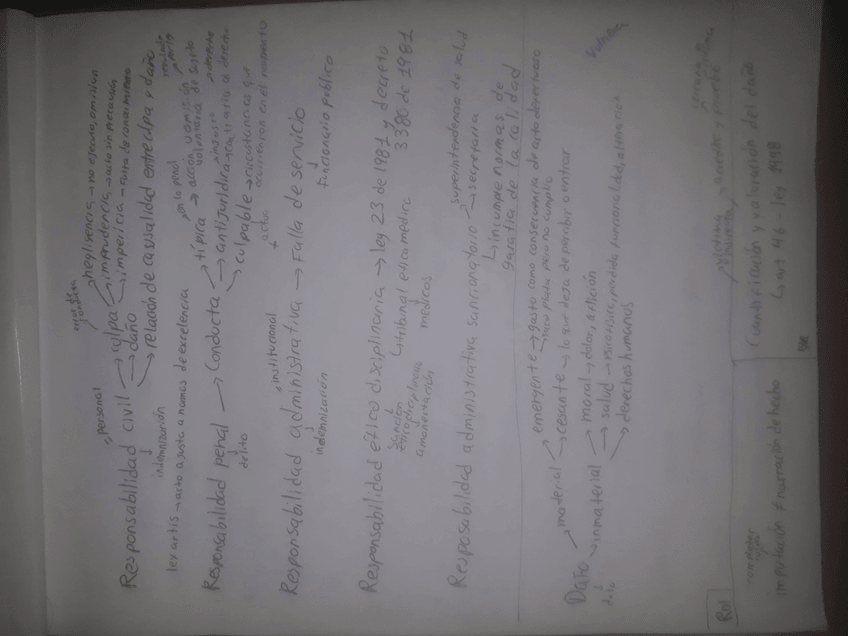 personal
error de conducta
Responsabilidad civil → culpa → negligencia → no ejecuto, omisión
→ imprudencia → acto sin precaución
→ impericia - falta de conocimiento
→ daño
→ relación de causalidad entre culpa y daño
indemnización
lex artis → acto ajusta a normas de excelencia
en lo penal
Responsabilidad penal → Conducta → típica → acción u omisión
voluntaria de sujeto
→ antijurídica → injusta
contraria al derecho
→ culpable → circustancias que
ocurrieron en el momento
delito
institucional
actor
Responsabilidad administrativa → Falla de servicio
indemnización
funcionario publico
Responsabilidad ético disciplinaria → ley 23 de 1981 y decreto
3380 de 1981
sanción
ético disciplinaria
amonestación
tribunal ética médica
médicos
Resposabilidad administrativa sancionatorio → superintendencia de salud
→ secretaria
↳ incumple normas de
garatia de la calidad
Daño → material → emergente → gasto como consecuencia de acto defectuoso
→ cesante → lo que deja de percibir o entrar
→ inmaterial → moral → dolor, aflicción
→ salud → psicofísica, perdida funcionalidad, alteración
→ derechos humanos
dolo
victima
Rol
imputación ≠ narración de hecho
Cuantificación y valoración del daño
↳ art 46 - ley 1998